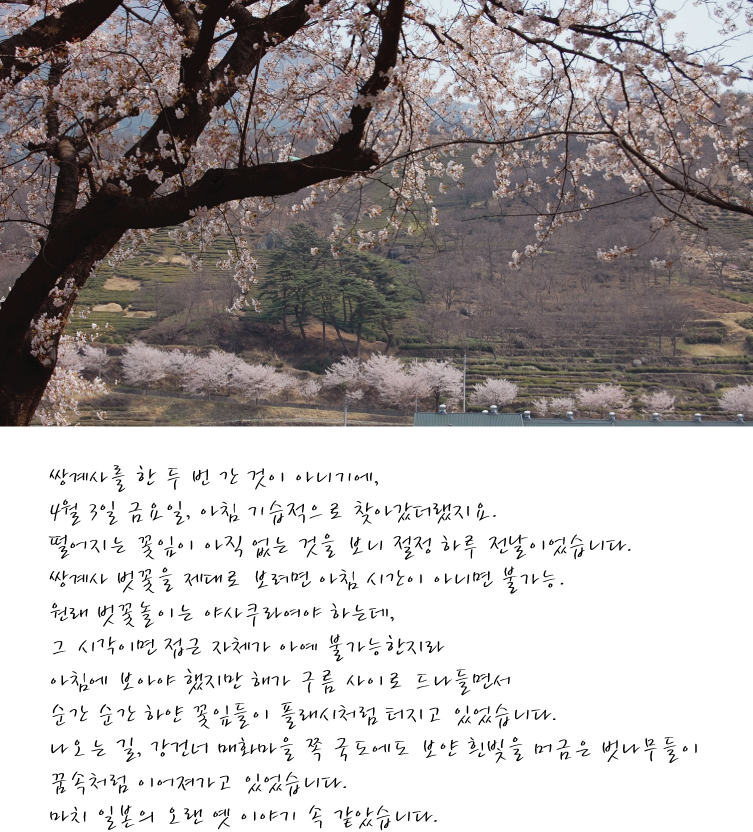 쌍계사를 한 두 번 간 것이 아니기에,
4월 3일 금요일, 아침 기습적으로 찾아갔더랬지요.
떨어지는 꽃잎이 아직 없는 것을 보니 절정 하루 전날이었습니다.
쌍계사 벚꽃을 제대로 보려면 아침 시간이 아니면 불가능.
원래 벚꽃놀이는 야사쿠라여야 하는데,
그 시각이면 접근 자체가 아예 불가능한지라
아침에 보아야 했지만 해가 구름 사이로 드나들면서
순간 순간 하얀 꽃잎들이 플래시처럼 터지고 있었습니다.
나오는 길, 강건너 매화마을 쪽 국도에도 보얀 흰빛을 머금은 벚나무들이
꿈속처럼 이어져가고 있었습니다.
마치 일본의 오랜 옛 이야기 속 같았습니다.